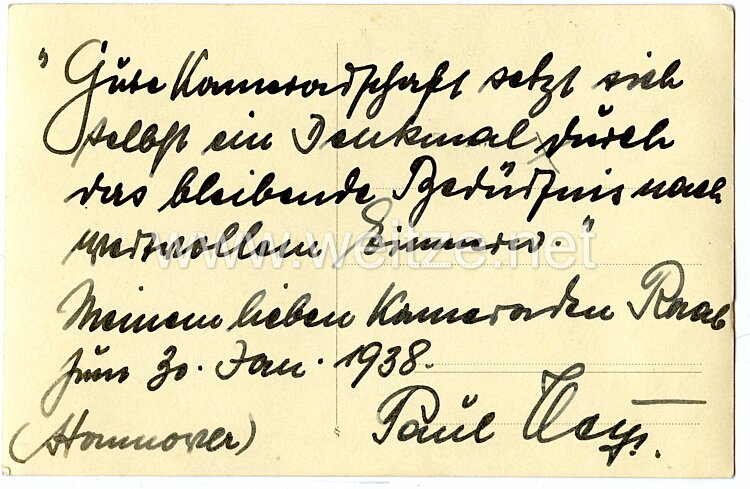 "Gute Kameradschaft setzt sich
selbst ein Denkmal durch
das bleibende Bedürfnis nach
wertvollem Erinnern."
www.weitze.net
Meinem lieben Kameraden Raab
zum 30. Jan. 1938.
(Hannover) Paul